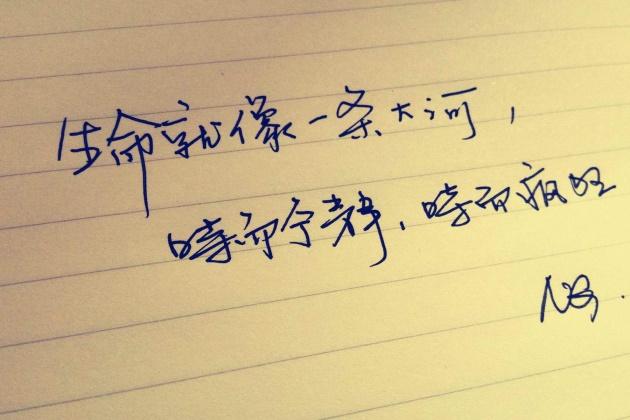 生命就像一条大河，
时而宁静，时而疯狂